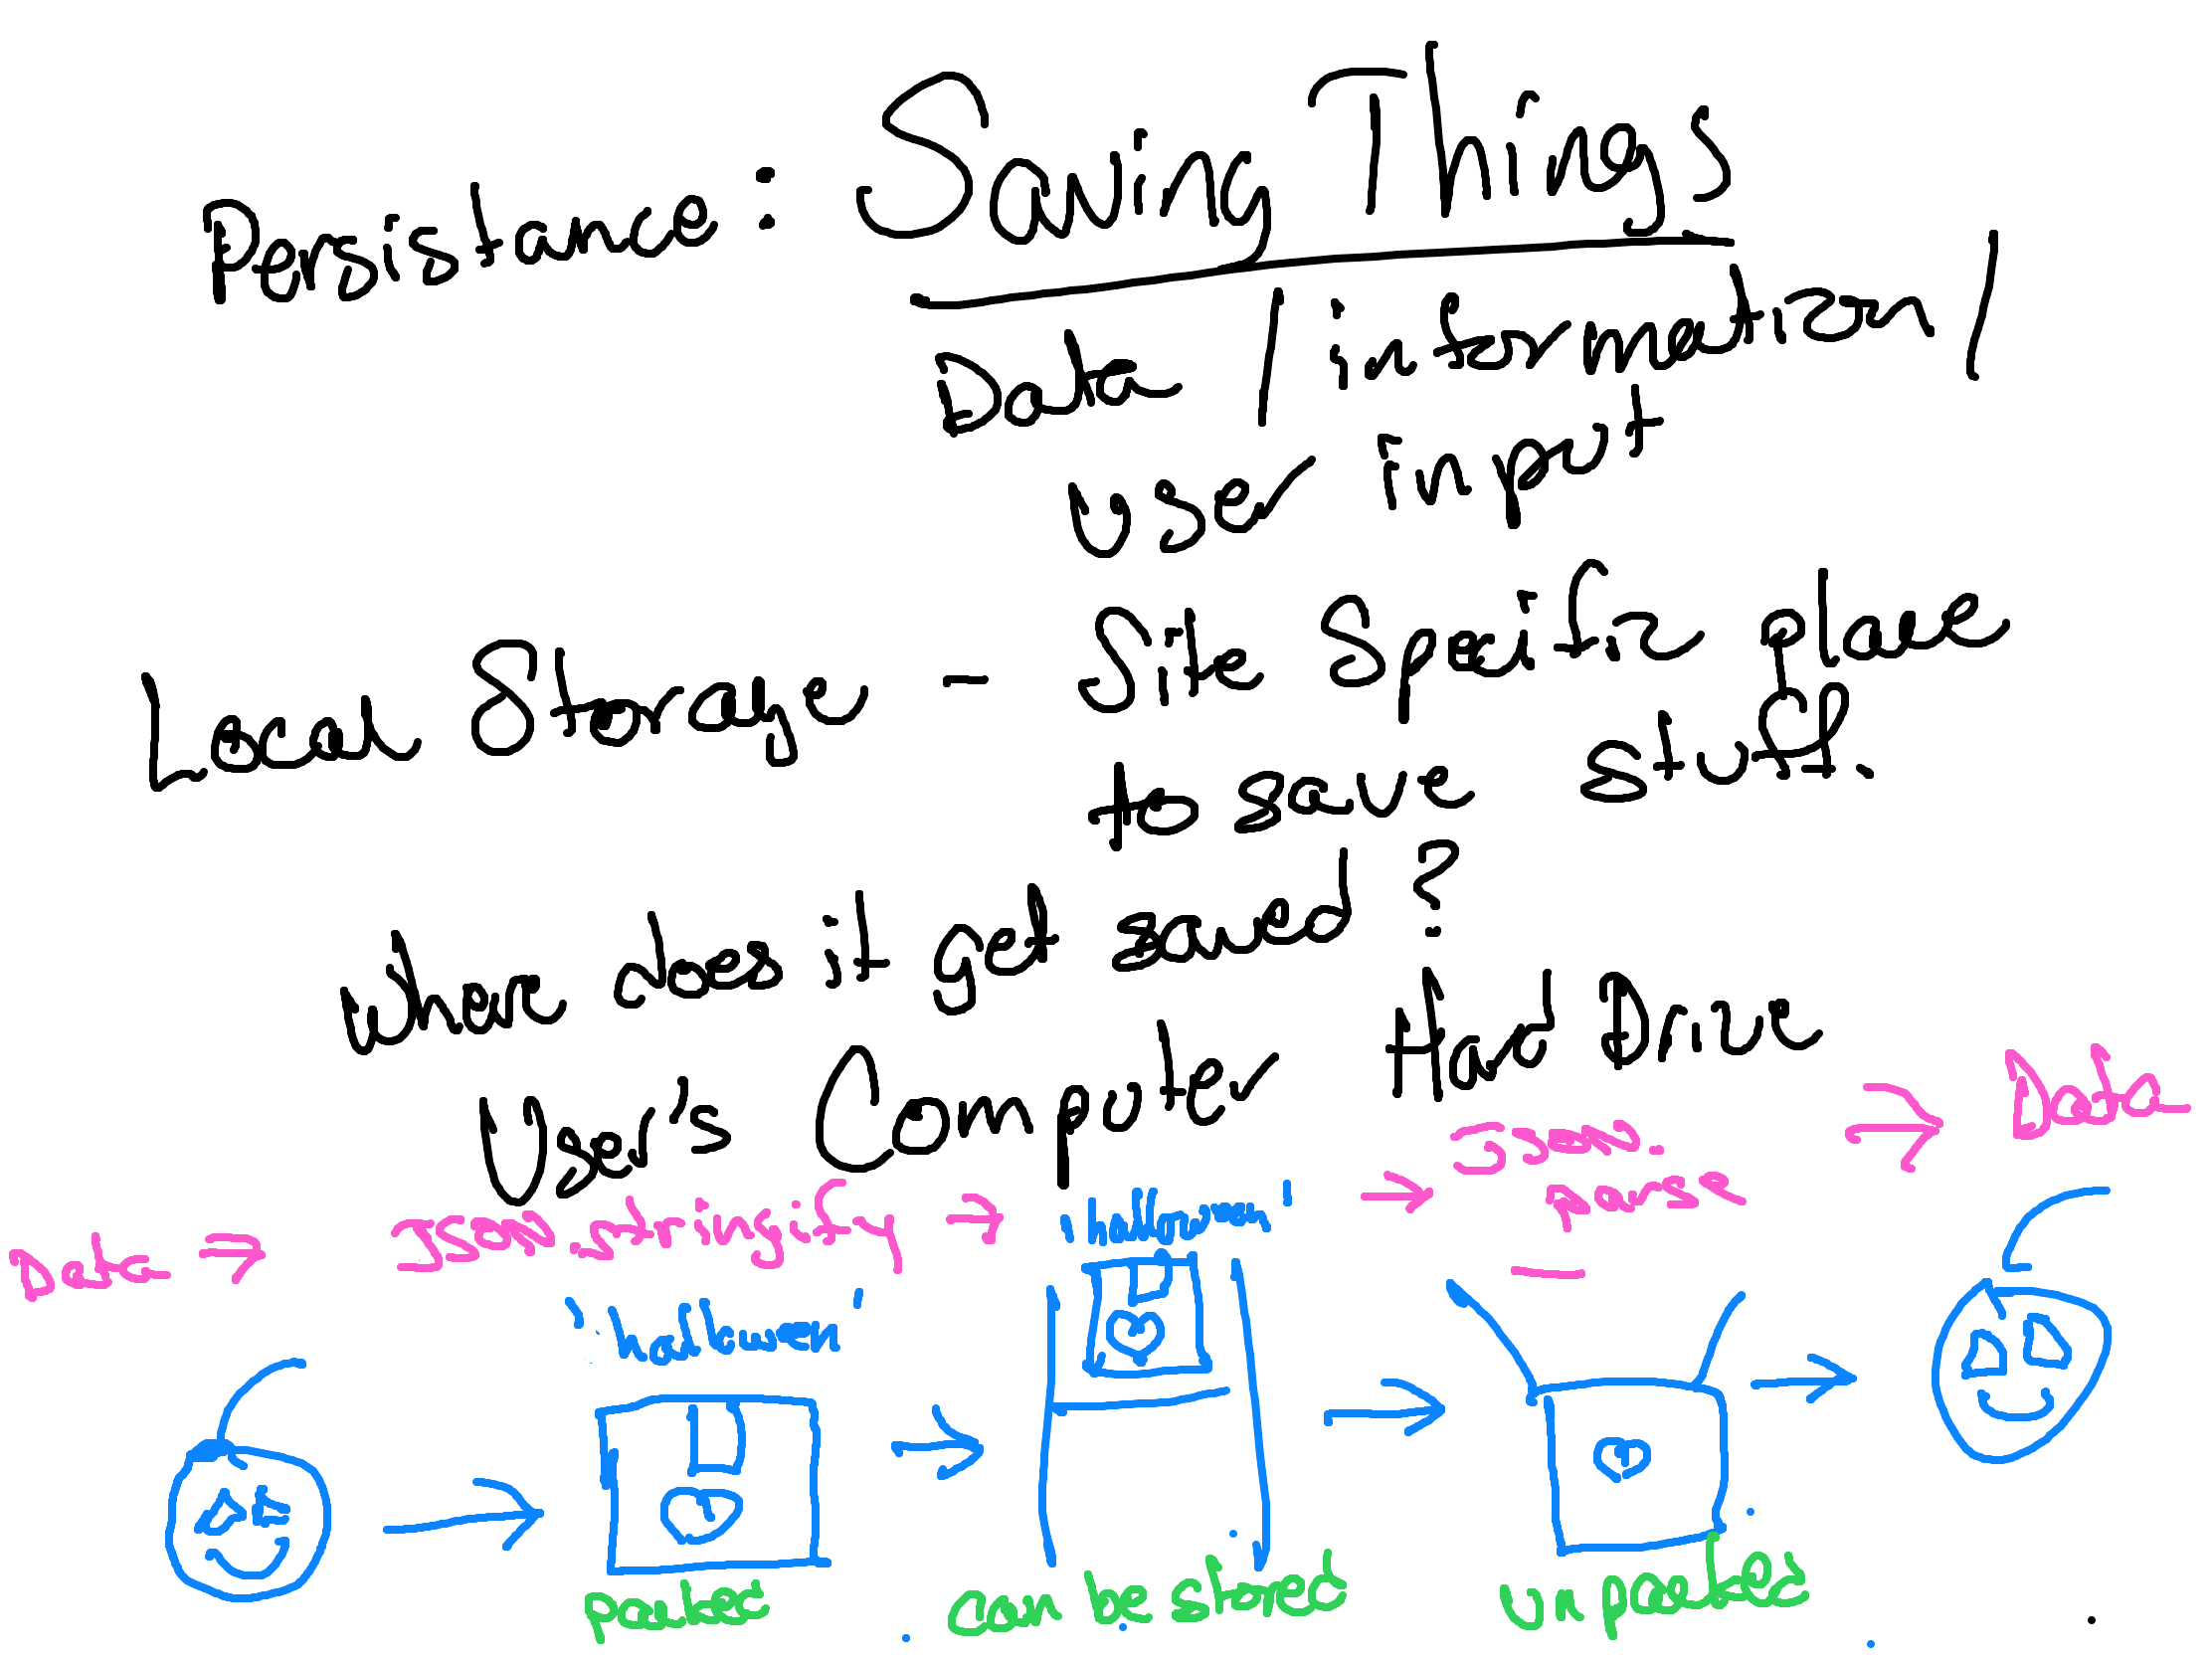 Persistance: Saving Things
Data / information /
user input
Local Storage - Site Specific place
to save stuff.
where does it get saved?
User's Computer Hard Drive
Data → JSON.stringify → 'halloween' → JSON.parse → Data
'halloween'
packed can be stored unpacked